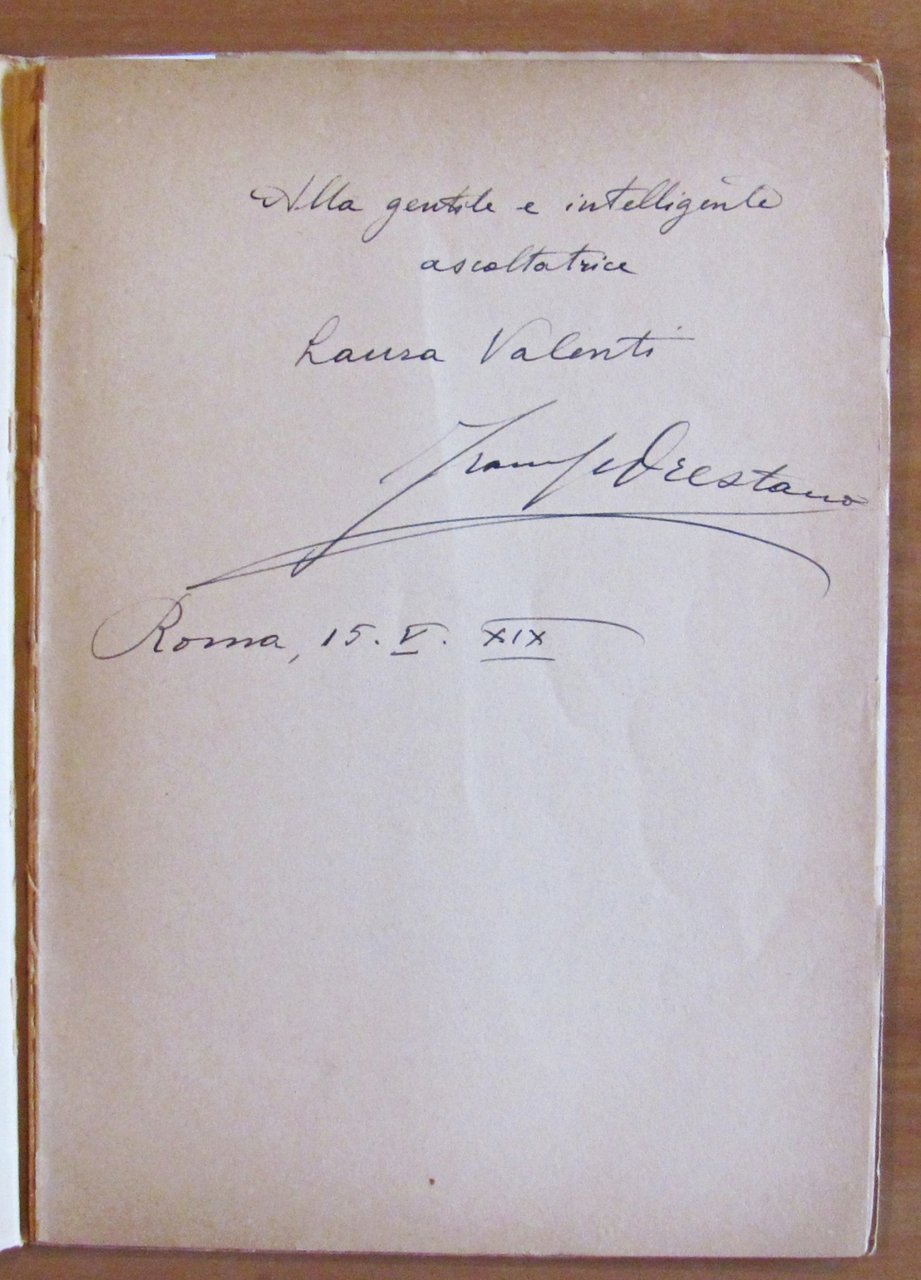 Alla gentile e intelligente
ascoltatrice
Laura Valenti
Orestano
Roma, 15. V. XIX